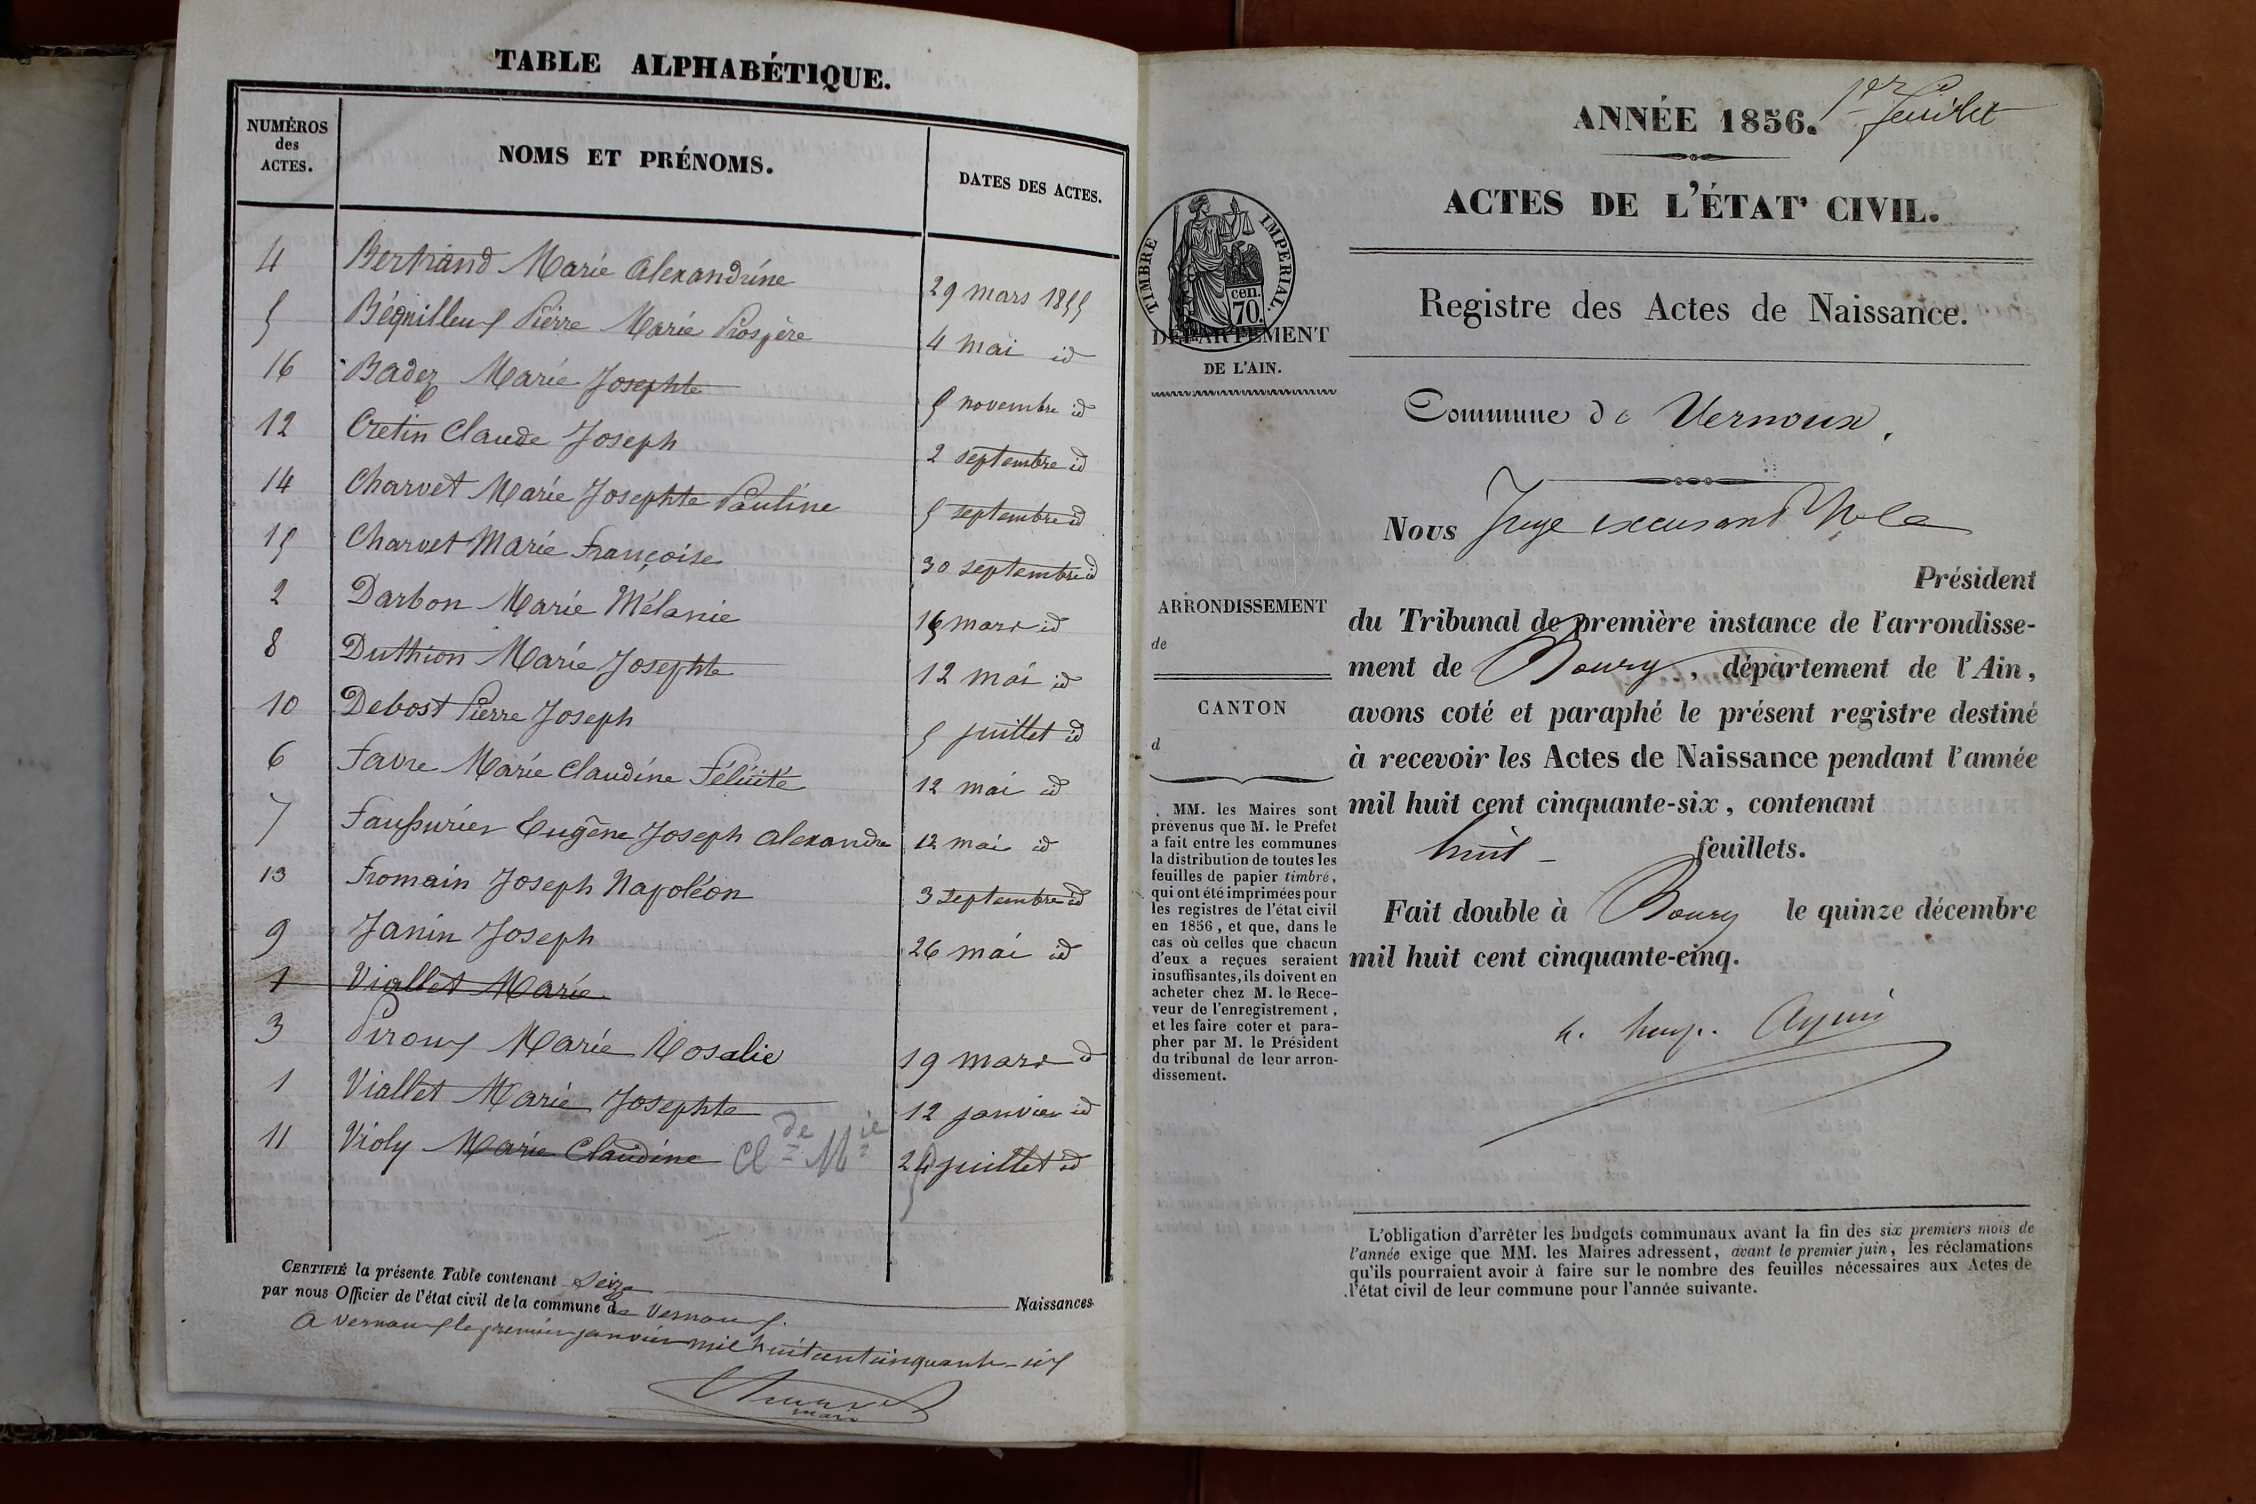 TABLE ALPHABÉTIQUE.
NUMÉROS des ACTES.
NOMS ET PRÉNOMS.
DATES DES ACTES.
4 Bertrand Marie Alexandrine 29 mars 1855
5 Béquilleux Pierre Marie Prospère 4 mai id
16 Badez Marie Josephte 5 novembre id
12 Cretin Claude Joseph 2 septembre id
14 Charvet Marie Josephte Pauline 5 septembre id
15 Charvet Marie Françoise 30 septembre id
2 Darbon Marie Mélanie mars id
8 Duthion Marie Josephte 12 mai id
10 Debost Pierre Joseph 5 juillet id
6 Favre Marie Claudine Félicité 12 mai id
7 Faussurier Eugène Joseph Alexandre 12 mai id
13 Fromain Joseph Napoléon 3 septembre id
9 Janin Joseph 26 mai id
1 Viallet Marie
3 Piroux Marie Rosalie 19 mars id
1 Viallet Marie Josephte 12 janvier id
11 Violy Marie Claudine Clde Mie juillet id
CERTIFIÉ la présente Table contenant seize Naissances
par nous Officier de l'état civil de la commune de Vernoux.
A Vernoux le premier janvier mil huit cent cinquante-six
maire
1er feuillet
ANNÉE 1856.
ACTES DE L'ÉTAT CIVIL.
TIMBRE IMPERIAL.
cen.
70.
DÉPARTEMENT
DE L'AIN.
Registre des Actes de Naissance.
Commune de Vernoux.
Nous Juge
Président
du Tribunal de première instance de l'arrondisse-
ment de Bourg, département de l'Ain,
avons coté et paraphé le présent registre destiné
à recevoir les Actes de Naissance pendant l'année
mil huit cent cinquante-six, contenant
huit feuillets.
Fait double à Bourg le quinze décembre
mil huit cent cinquante-cinq.
ARRONDISSEMENT
de
CANTON
d
MM. les Maires sont
prévenus que M. le Préfet
a fait entre les communes
la distribution de toutes les
feuilles de papier timbré,
qui ont été imprimées pour
les registres de l'état civil
en 1856, et que, dans le
cas où celles que chacun
d'eux a reçues seraient
insuffisantes, ils doivent en
acheter chez M. le Rece-
veur de l'enregistrement,
et les faire coter et para-
pher par M. le Président
du tribunal de leur arron-
dissement.
L'obligation d'arrêter les budgets communaux avant la fin des six premiers mois de
l'année exige que MM. les Maires adressent, avant le premier juin, les réclamations
qu'ils pourraient avoir à faire sur le nombre des feuilles nécessaires aux Actes de
l'état civil de leur commune pour l'année suivante.